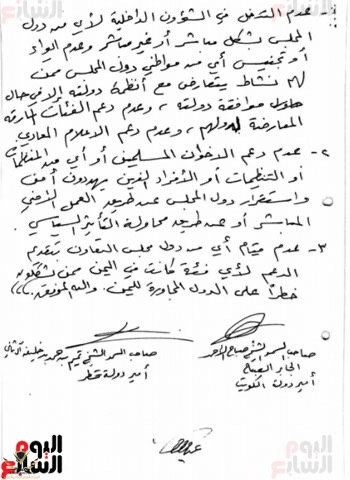 ١- عدم التدخل في الشؤون الداخلية لأي من دول
المجلس بشكل مباشر أو غير مباشر وعدم إيواء
أو تجنيس أي من مواطني دول المجلس ممن
لهم نشاط يتعارض مع أنظمة دولته إلا في حال
موافقة دولته، وعدم دعم الفئات المارقه
المعارضة لدولهم، وعدم دعم الاعلام المعادي
٢- عدم دعم الاخوان المسلمين أو أي من المنظمات
أو التنظيمات أو الأفراد الذين يهددون أمن
واستقرار دول المجلس عن طريق العمل الأمني
المباشر أو عن طريق محاولة التأثير السياسي
٣- عدم قيام أي من دول مجلس التعاون بتقديم
الدعم لأي فئة كانت في اليمن ممن يشكلون
خطراً على الدول المجاورة لليمن. والله الموفق،،،
صاحب السمو الشيخ صباح الأحمد
الجابر الصباح
أمير دولة الكويت
صاحب السمو الشيخ تميم بن حمد بن خليفه آل ثاني
أمير دولة قطر
اليوم السابع
اليوم السابع